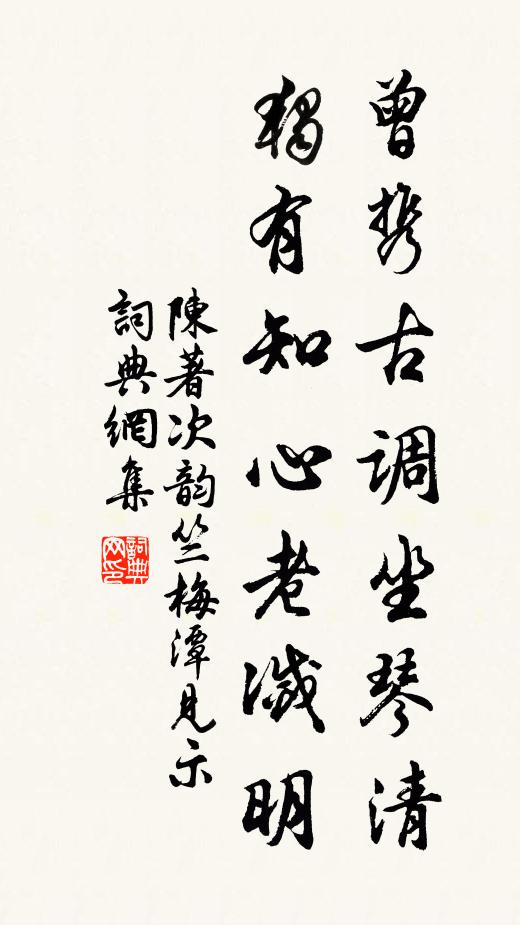 曾携古調坐琴清
獨有知心老澱明
陳著次韵竺梅潭見示
詞典網集
詞典
网印